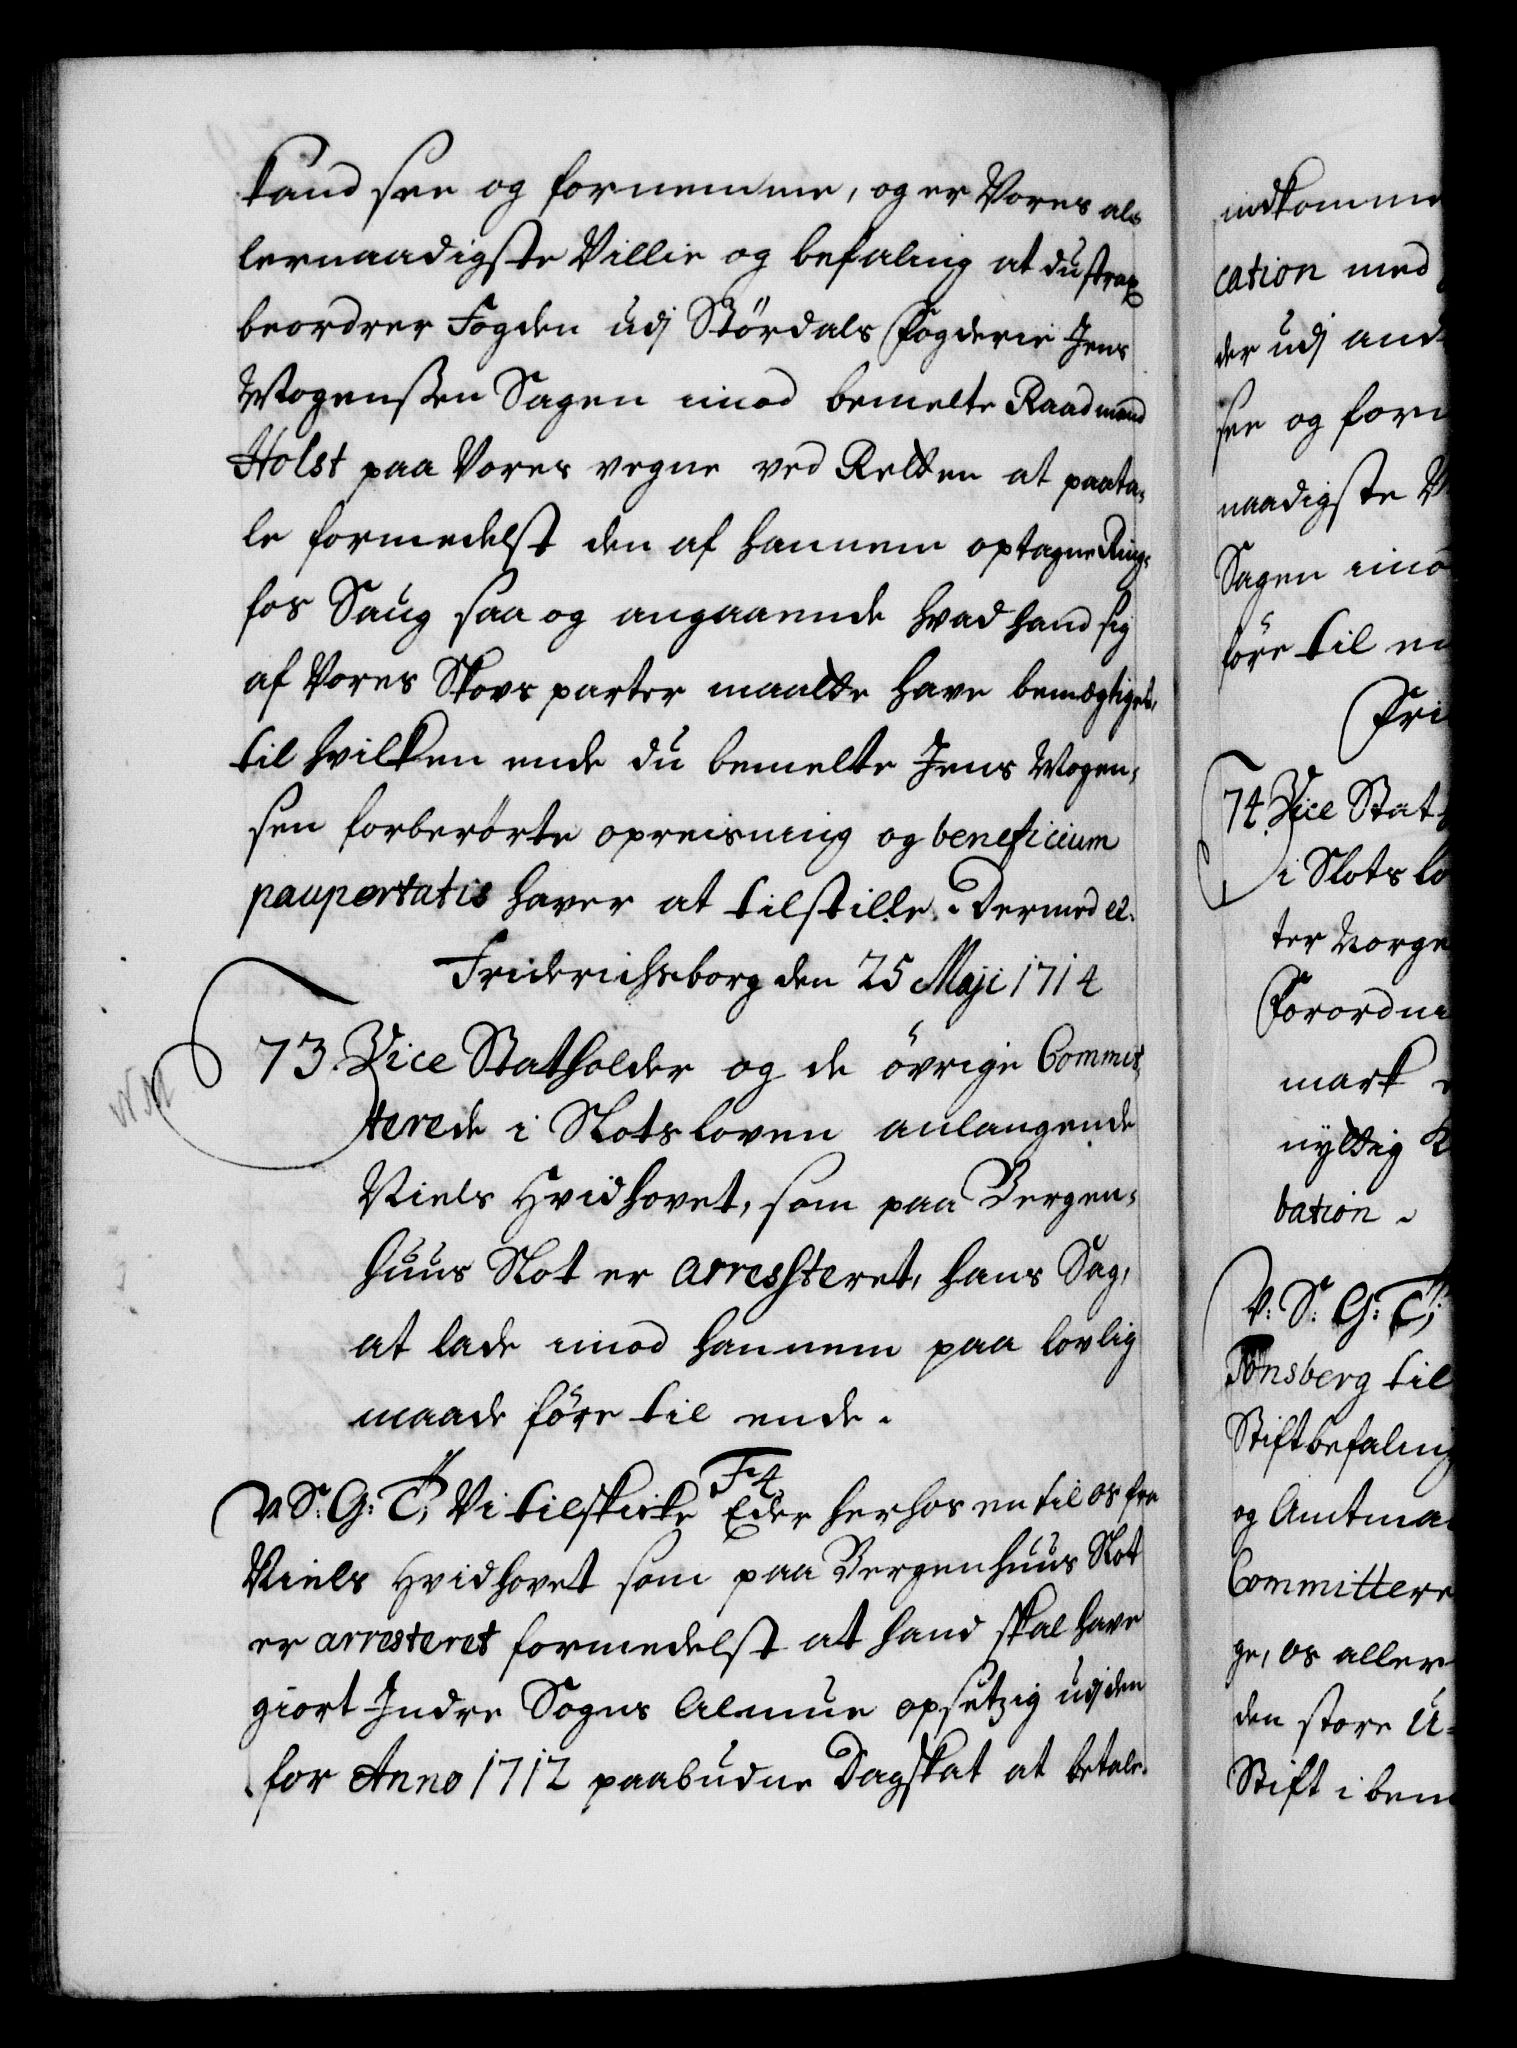 kand see og fornemme, og er Vores al-
lernaadigste Villie og befaling at du strax
beordrer Fogden udj Stördals Fogderie Jens
Mogenssen Sagen imod bemelte Raadmand
Holst paa Vores vegne ved Retten at paata-
le formedelst den af hannem optagne Ring-
fos Saug saa og angaaende hvad hand sig
af Vores Skovs parter maatte have bemægtiget,
til hvilken ende du bemelte Jens Mogen-
sen forberörte opreisning og beneficium
paupertatis haver at tilstille. Dermed etc.
Friderichsborg den 25 Maji 1714
73. Vice Statholder og de övrige Commit-
terede i Slotsloven anlangende
Niels Hvidhovet, som paa Bergen-
huus Slot er arresteret, hans Sag,
at lade imod hannem paa lovlig
maade före til ende.
F4
V: S: G: T; Vi tilskicke Eder herhos en til os fra
Niels Hvidhovet som paa Bergenhuus Slot
er arresteret formedelst at hand skal have
giort Indre Sogns Almue opsetzig udj den
for Anno 1712 paabudne Dagskat at betale.
indkomme
cation med
der udj and
see og forn
naadigste V
Sagen imo
före til en
Fri
74. Vice Stat
i Slots lo
ter Norge
Forordni
mark
nyttig
bation.
V: S: G: T;
Tönsberg til
Stiftbefaling
og Amtma
Committere
ge, os aller
den store U-
Stift i bem